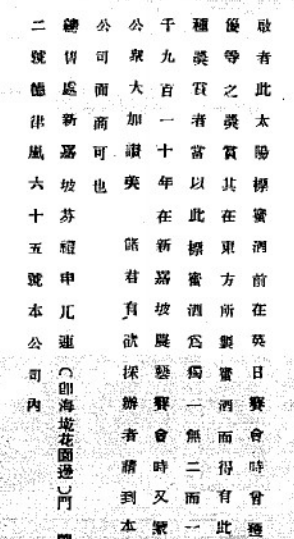 啟者此太陽標蜜酒前在英日賽會時曾獲
優等之奬賞其在東方所製蜜酒而得有此
種奬賞者當以此標蜜酒爲獨一無二而一
千九百一十年在新嘉坡展藝賽會時又蒙
公眾大加讃美 諸君有欲採辦者請到本
公司面商可也
總售處新嘉坡芬禮申兀連(卽海墘花園邊)門
二號德律風六十五號本公司內